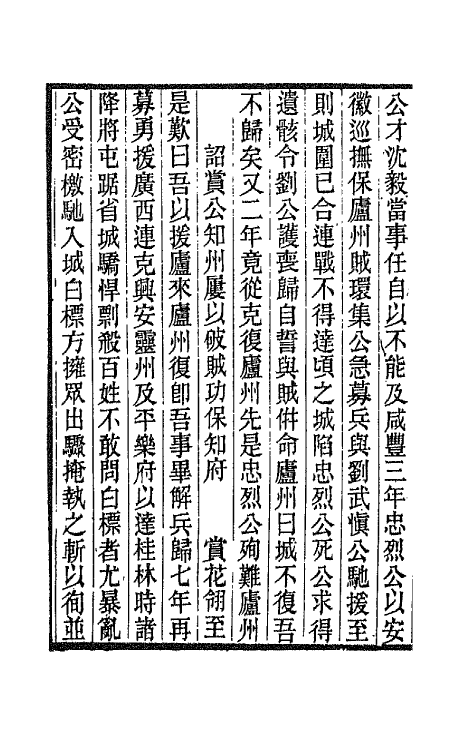 公才沈毅當事任自以不能及咸豐三年忠烈公以安
徽巡撫保廬州賊環集公急募兵與劉武愼公馳援至
則城圍已合連戰不得達頃之城陷忠烈公死公求得
遺骸令劉公護喪歸自誓與賊併命廬州曰城不復吾
不歸矣又二年竟從克復廬州先是忠烈公殉難廬州
詔賞公知州屢以破賊功保知府　賞花翎至
是歎曰吾以援廬來廬州復卽吾事畢解兵歸七年再
募勇援廣西連克興安靈州及平樂府以達桂林時諸
降將屯踞省城驕悍剽殺百姓不敢問白標者尤暴亂
公受密檄馳入城白標方擁眾出驟掩執之斬以徇並